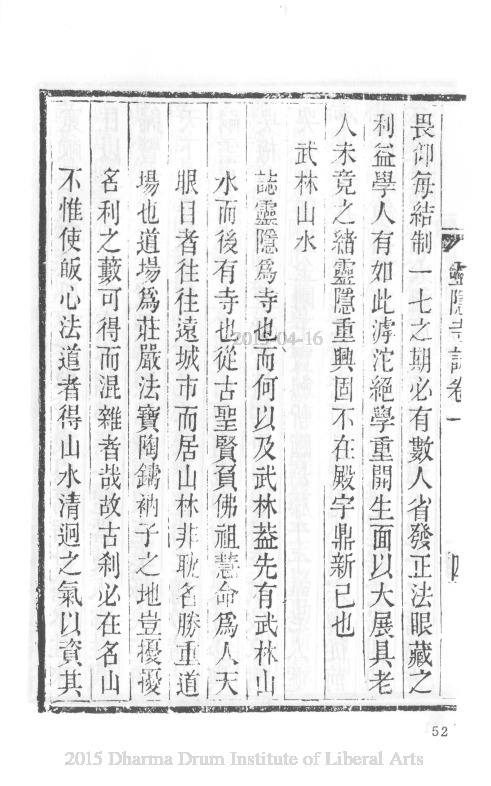 靈隱寺誌卷一
四
畏仰每結制一七之期必有數人省發正法眼藏之
利益學人有如此滹沱絕學重開生面以大展具老
人未竟之緒靈隱重興固不在殿宇鼎新已也
武林山水
誌靈隱爲寺也而何以及武林葢先有武林山
水而後有寺也從古聖賢負佛祖慧命爲人天
眼目者往往遠城市而居山林非耽名勝重道
場也道場爲莊嚴法寶陶鑄衲子之地豈擾擾
名利之藪可得而混雜者哉故古刹必在名山
不惟使皈心法道者得山水清迥之氣以資其
52
2015 Dharma Drum Institute of Liberal Arts